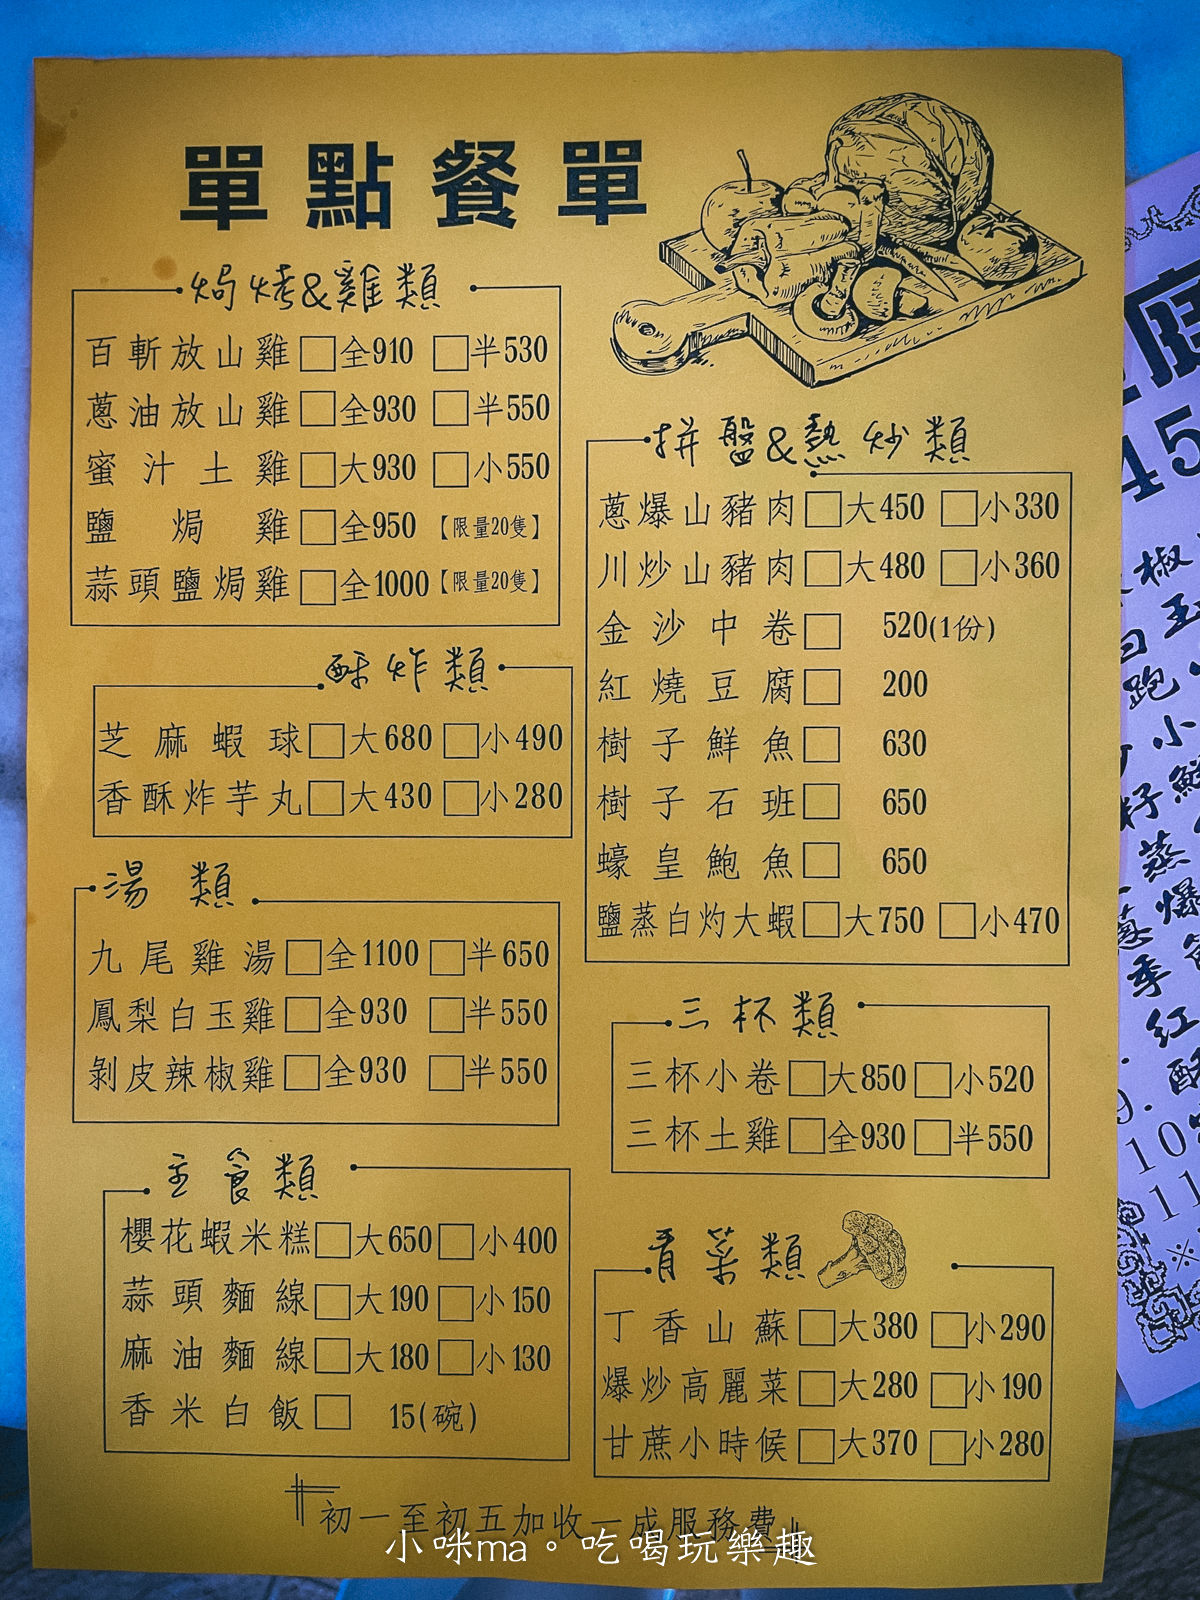 單點餐單
焗烤&雞類
百斬放山雞□全910 □半530
蔥油放山雞□全930 □半550
蜜汁土雞□大930 □小550
鹽焗雞□全950【限量20隻】
蒜頭鹽焗雞□全1000【限量20隻】
酥炸類
芝麻蝦球□大680 □小490
香酥炸芋丸□大430 □小280
湯類
九尾雞湯□全1100 □半650
鳳梨白玉雞□全930 □半550
剝皮辣椒雞□全930 □半550
主食類
櫻花蝦米糕□大650 □小400
蒜頭麵線□大190 □小150
麻油麵線□大180 □小130
香米白飯□ 15(碗)
拼盤&熱炒類
蔥爆山豬肉□大450 □小330
川炒山豬肉□大480 □小360
金沙中卷□ 520(1份)
紅燒豆腐□ 200
樹子鮮魚□ 630
樹子石斑□ 650
蠔皇鮑魚□ 650
鹽蒸白灼大蝦□大750 □小470
三杯類
三杯小卷□大850 □小520
三杯土雞□全930 □半550
青菜類
丁香山蘇□大380 □小290
爆炒高麗菜□大280 □小190
甘蔗小時候□大370 □小280
初一至初五加收一成服務費
小咪ma。吃喝玩樂趣
庭
45
椒
玉
跑
小
籽鮮
蒸
蔥爆
季
紅
9.酥
10
11
※